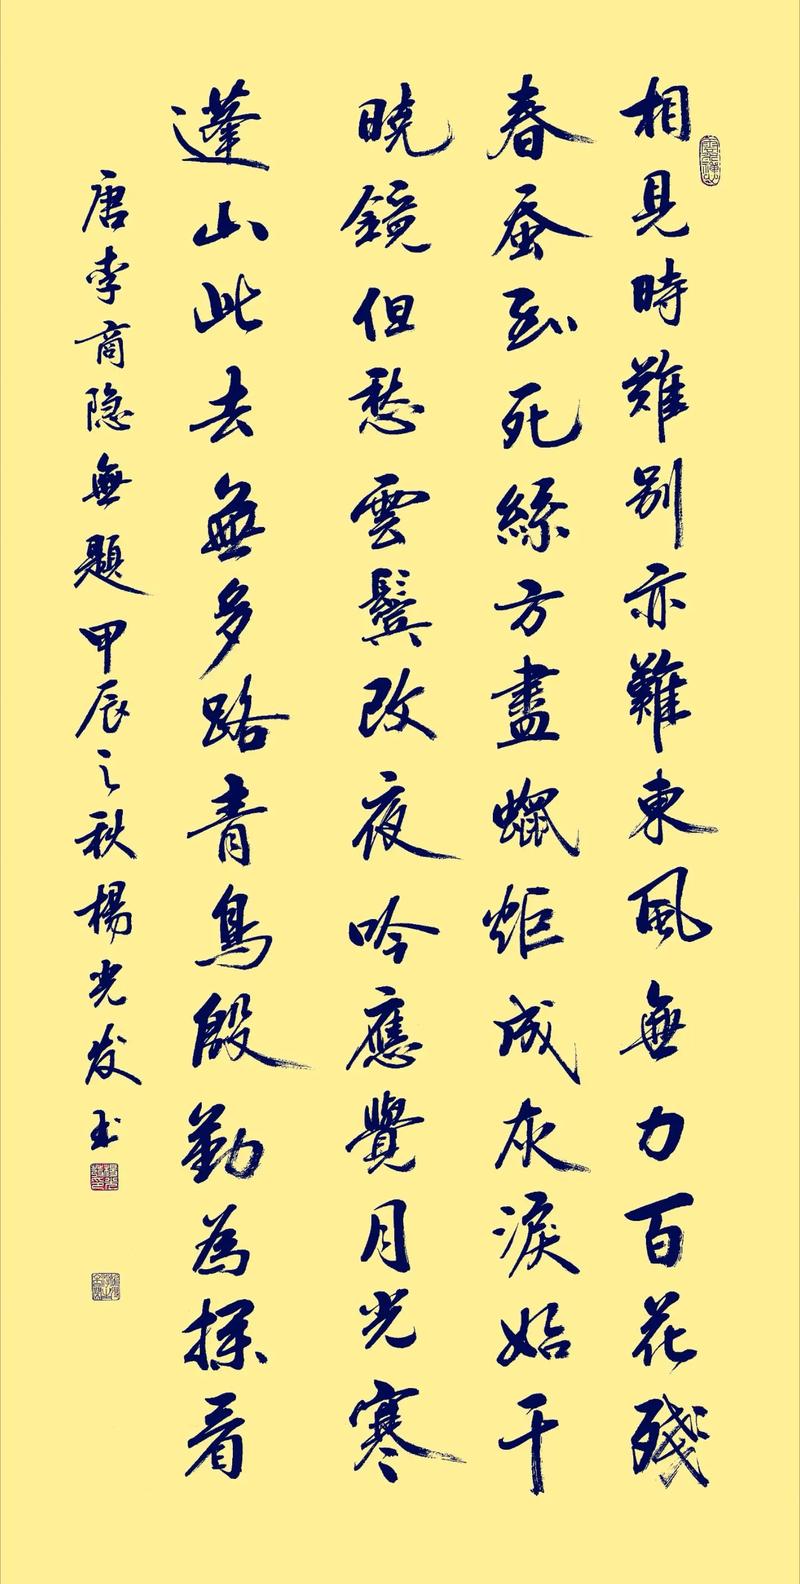 相見時難別亦難東風無力百花殘
春蚕到死絲方盡蠟炬成灰淚始干
曉鏡但愁雲鬢改夜吟應覺月光寒
蓬山此去無多路青鳥殷勤為探看
唐李商隐無題甲辰之秋楊光发书